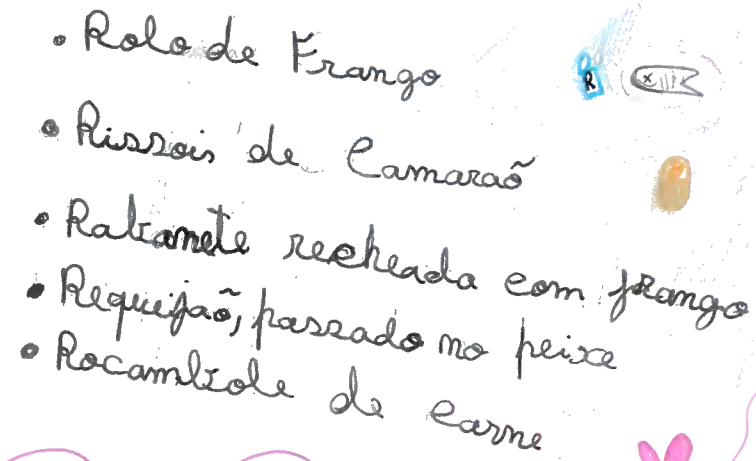 • Rolo de Frango
R
• Rissois de Camaraõ
• Rabanete recheada com frango
• Requeijaõ, passado no peixe
• Rocambole de carne